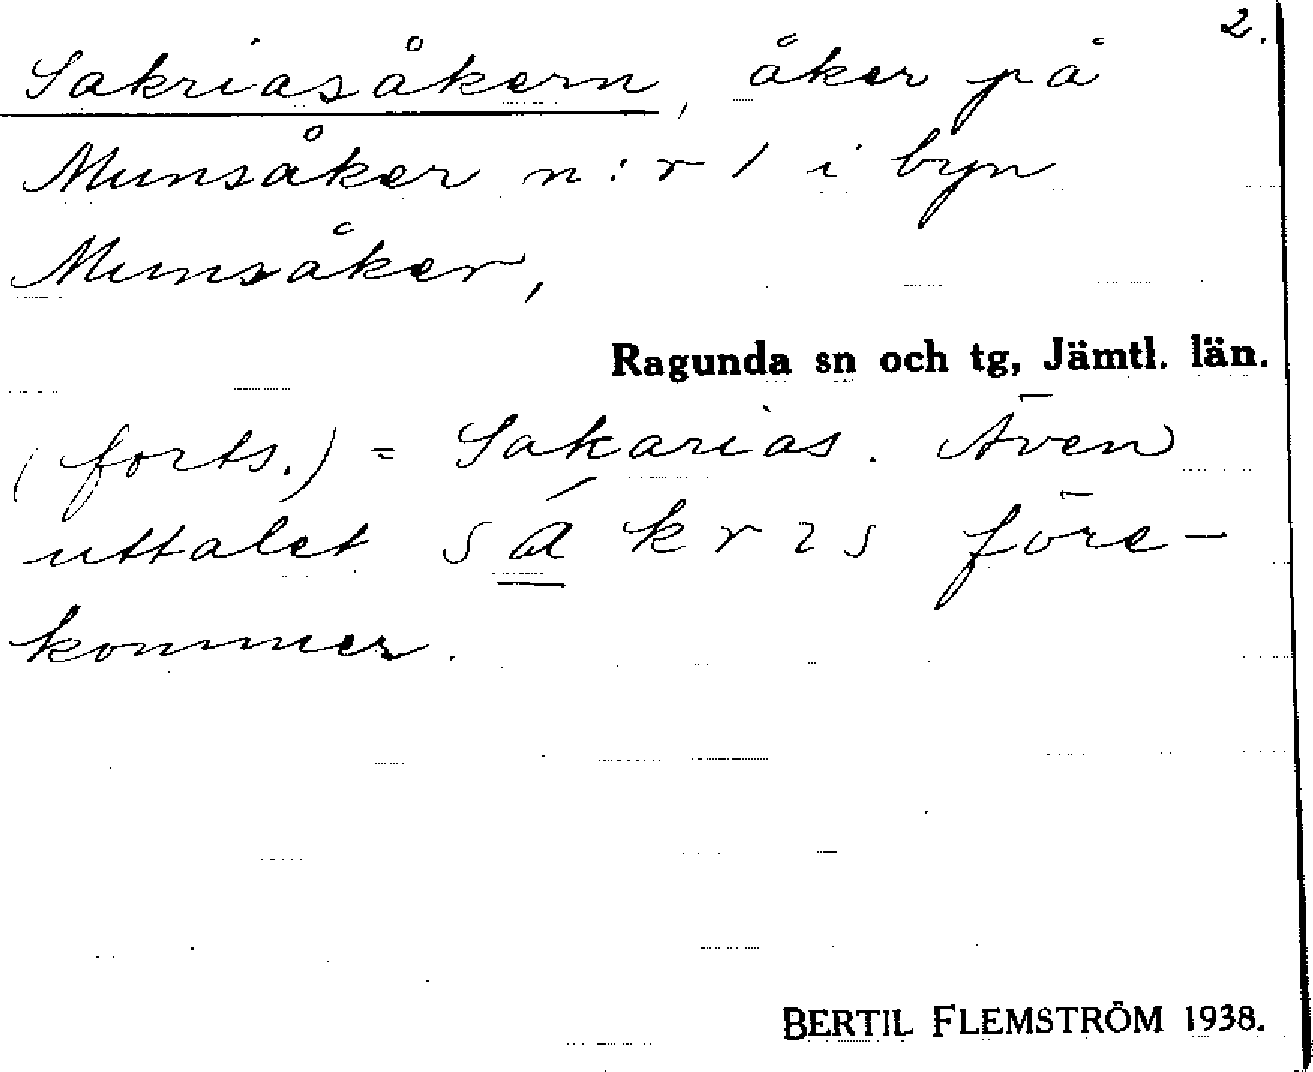 2.
Sakriasåkern, åker på
Munsåker n:r 1 i byn
Munsåker,
Ragunda sn och tg, Jämtl. län.
(forts.) = Sakarias. Även
uttalet före-
kommer.
BERTIL FLEMSTRÖM 1938.